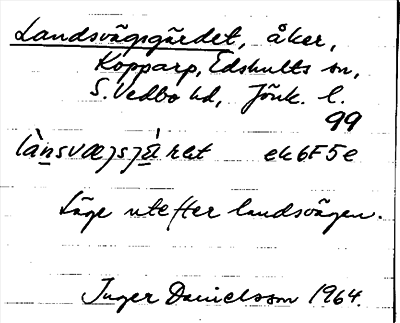 Landsvägsgärdet, åker,
Kopparp, Edshults sn,
S. Vedbo hd, Jönk. l.
99
ek6F5e
Läge utefter landsvägen.
Inger Danielsson 1964.